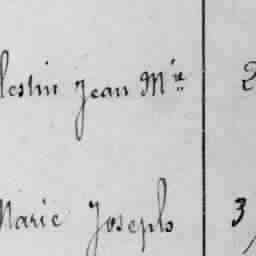 lestin Jean Mie 2
Marie Joseph 3